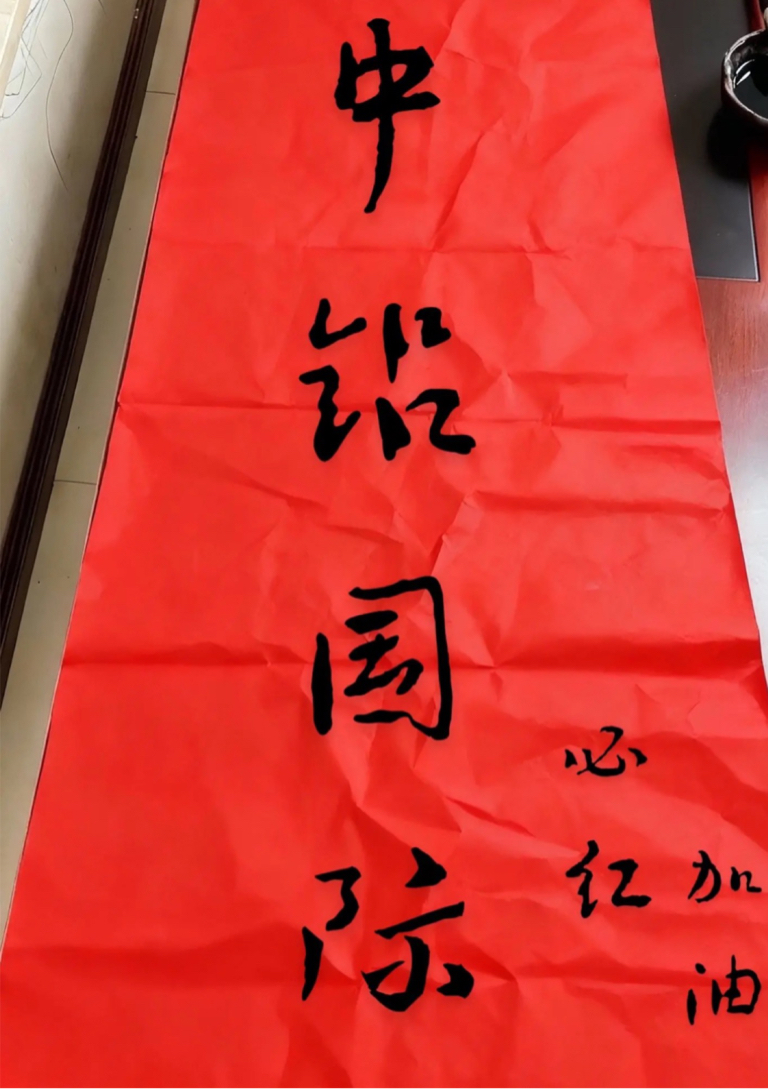 中铝国际
必红
加油